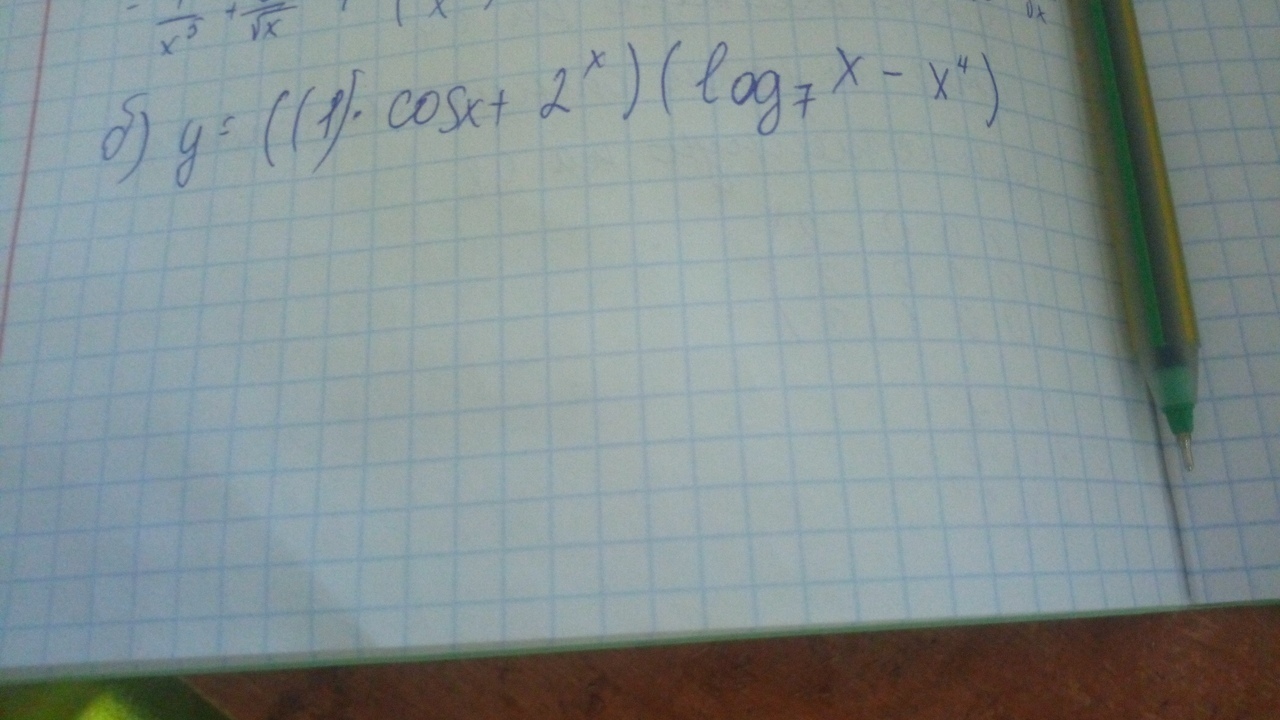 x³ + √x ( x √x
б) y = ((1)· cosx + 2ˣ) (log₇ x - x⁴)